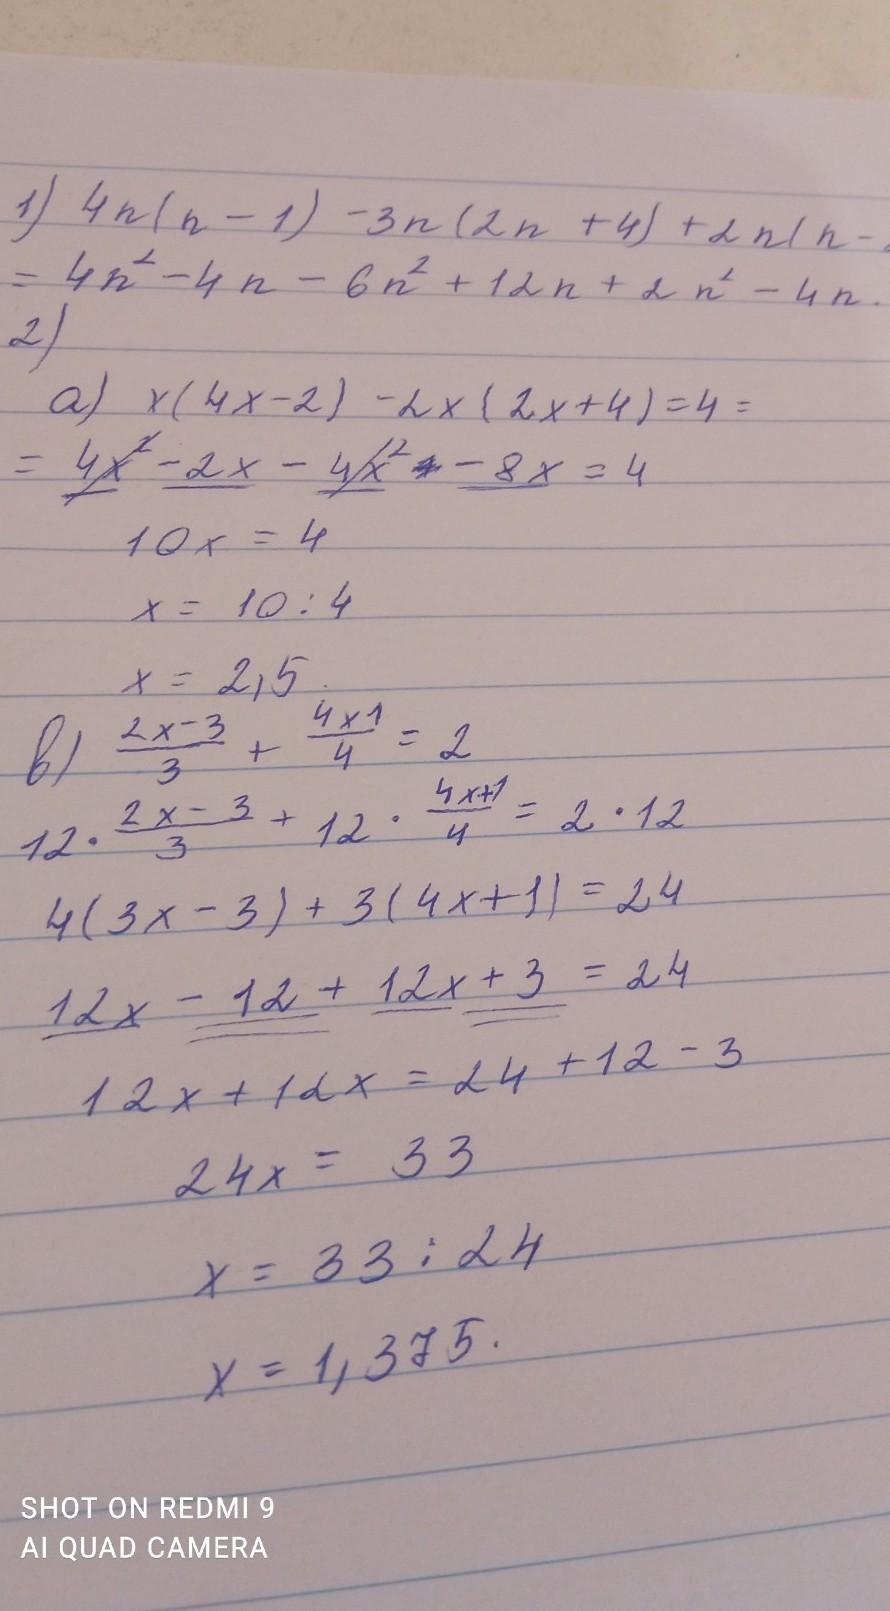 1) 4n(n - 1) - 3n(2n + 4) + 2n(n -
= 4n² - 4n - 6n² + 12n + 2n² - 4n.
2)
a) x(4x-2) - 2x(2x+4) = 4 =
= 4x² - 2x - 4x² - 8x = 4
10x = 4
x = 10 : 4
x = 2,5.
b) (2x-3)/3 + (4x1)/4 = 2
12 · (2x-3)/3 + 12 · (4x+1)/4 = 2 · 12
4(3x - 3) + 3(4x+1) = 24
12x - 12 + 12x + 3 = 24
12x + 12x = 24 + 12 - 3
24x = 33
x = 33 : 24
x = 1,375.
SHOT ON REDMI 9
AI QUAD CAMERA